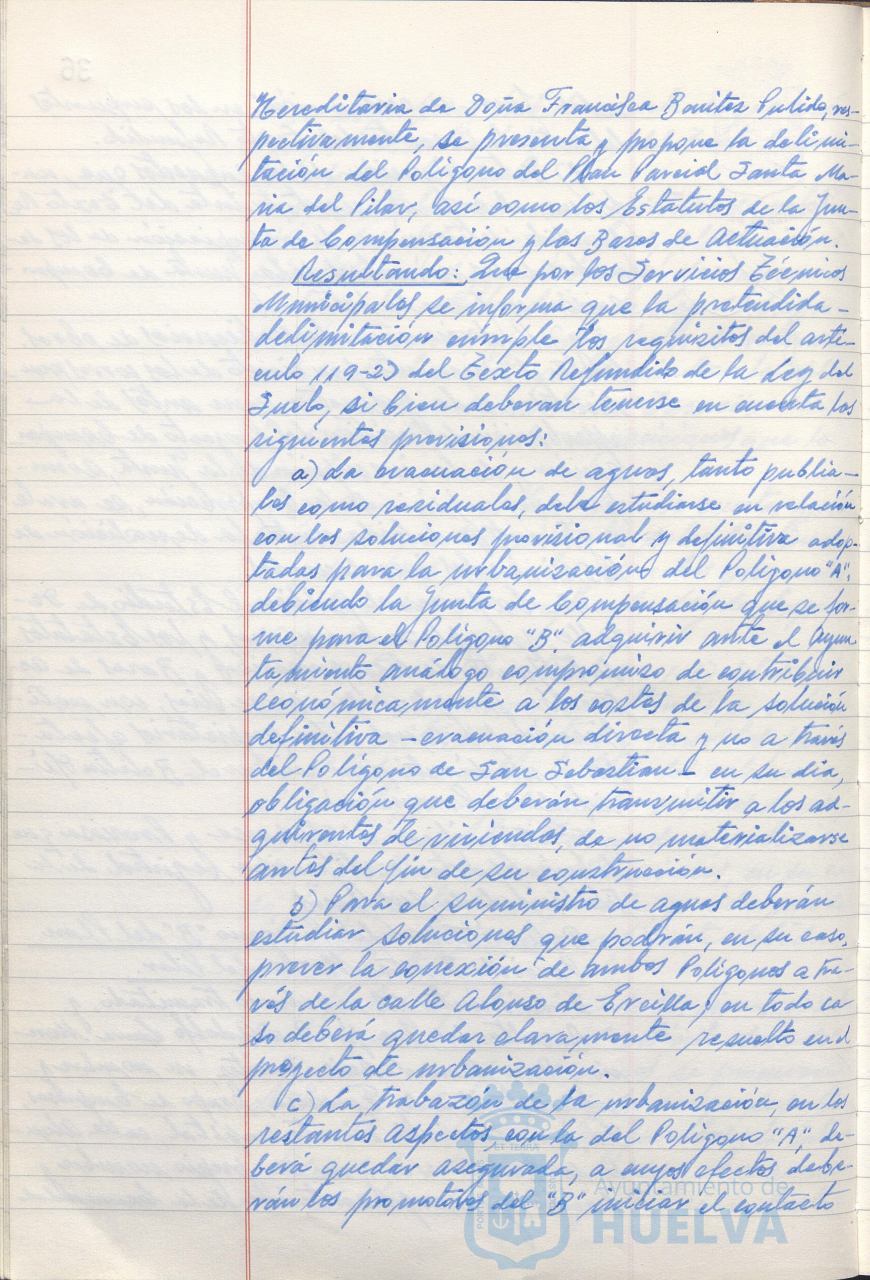 Hereditaria de Doña Francisca Benitez Pulido, res-
pectivamente, se presenta y propone la delimi-
tación del Polígono del Plan Parcial Santa Ma-
ria del Pilar, así como los Estatutos de la Jun-
ta de Compensación y las Bases de Actuación.
Resultando: Que por los Servicios Técnicos
Municipales se informa que la pretendida-
delimitación cumple los requisitos del artí-
culo 119-2) del Texto Refundido de la Ley del
Suelo, si bien deberan tenerse en cuenta las
siguientes previsiones:
a) La evacuación de aguas, tanto pluvia-
les como residuales, debe estudiarse en relación
con las soluciones provisional y definitiva adop-
tadas para la urbanización del Polígono "A",
debiendo la Junta de Compensación que se for-
me para el Polígono "B", adquirir ante el Ayun
tamiento análogo compromiso de contribuir
económicamente a los costes de la solución
definitiva - evacuación directa y no a través
del Polígono de San Sebastian - en su dia,
obligación que deberán transmitir a los ad-
quirentes de viviendas, de no materializarse
antes del fin de su construcción.
b) Para el suministro de aguas deberán
estudiar soluciones que podrán, en su caso,
prever la conexión de ambos Polígonos a tra-
vés de la calle Alonso de Ercilla; en todo ca
so deberá quedar claramente resuelto en el
proyecto de urbanización.
c) La trabazón de la urbanización, en los
restantes aspectos, con la del Polígono "A", de-
berá quedar asegurada, a cuyos efectos debe-
rán los promotores del "B" iniciar el contacto
Ayuntamiento de
HUELVA